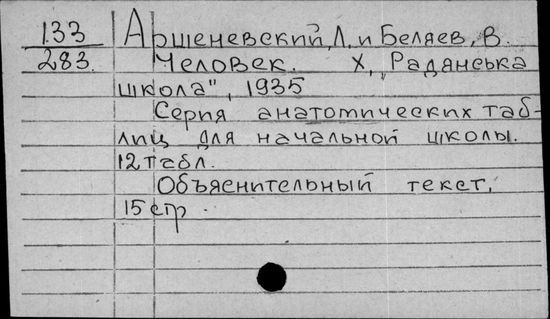 133 Аршеневский, Л. и Беляев, В.
283. Человек. Х, „Радянська
школа", 1935
Серия анатомических таб-
лиц для начальной школы.
12 табл.
Объяснительный текст,
15 стр.